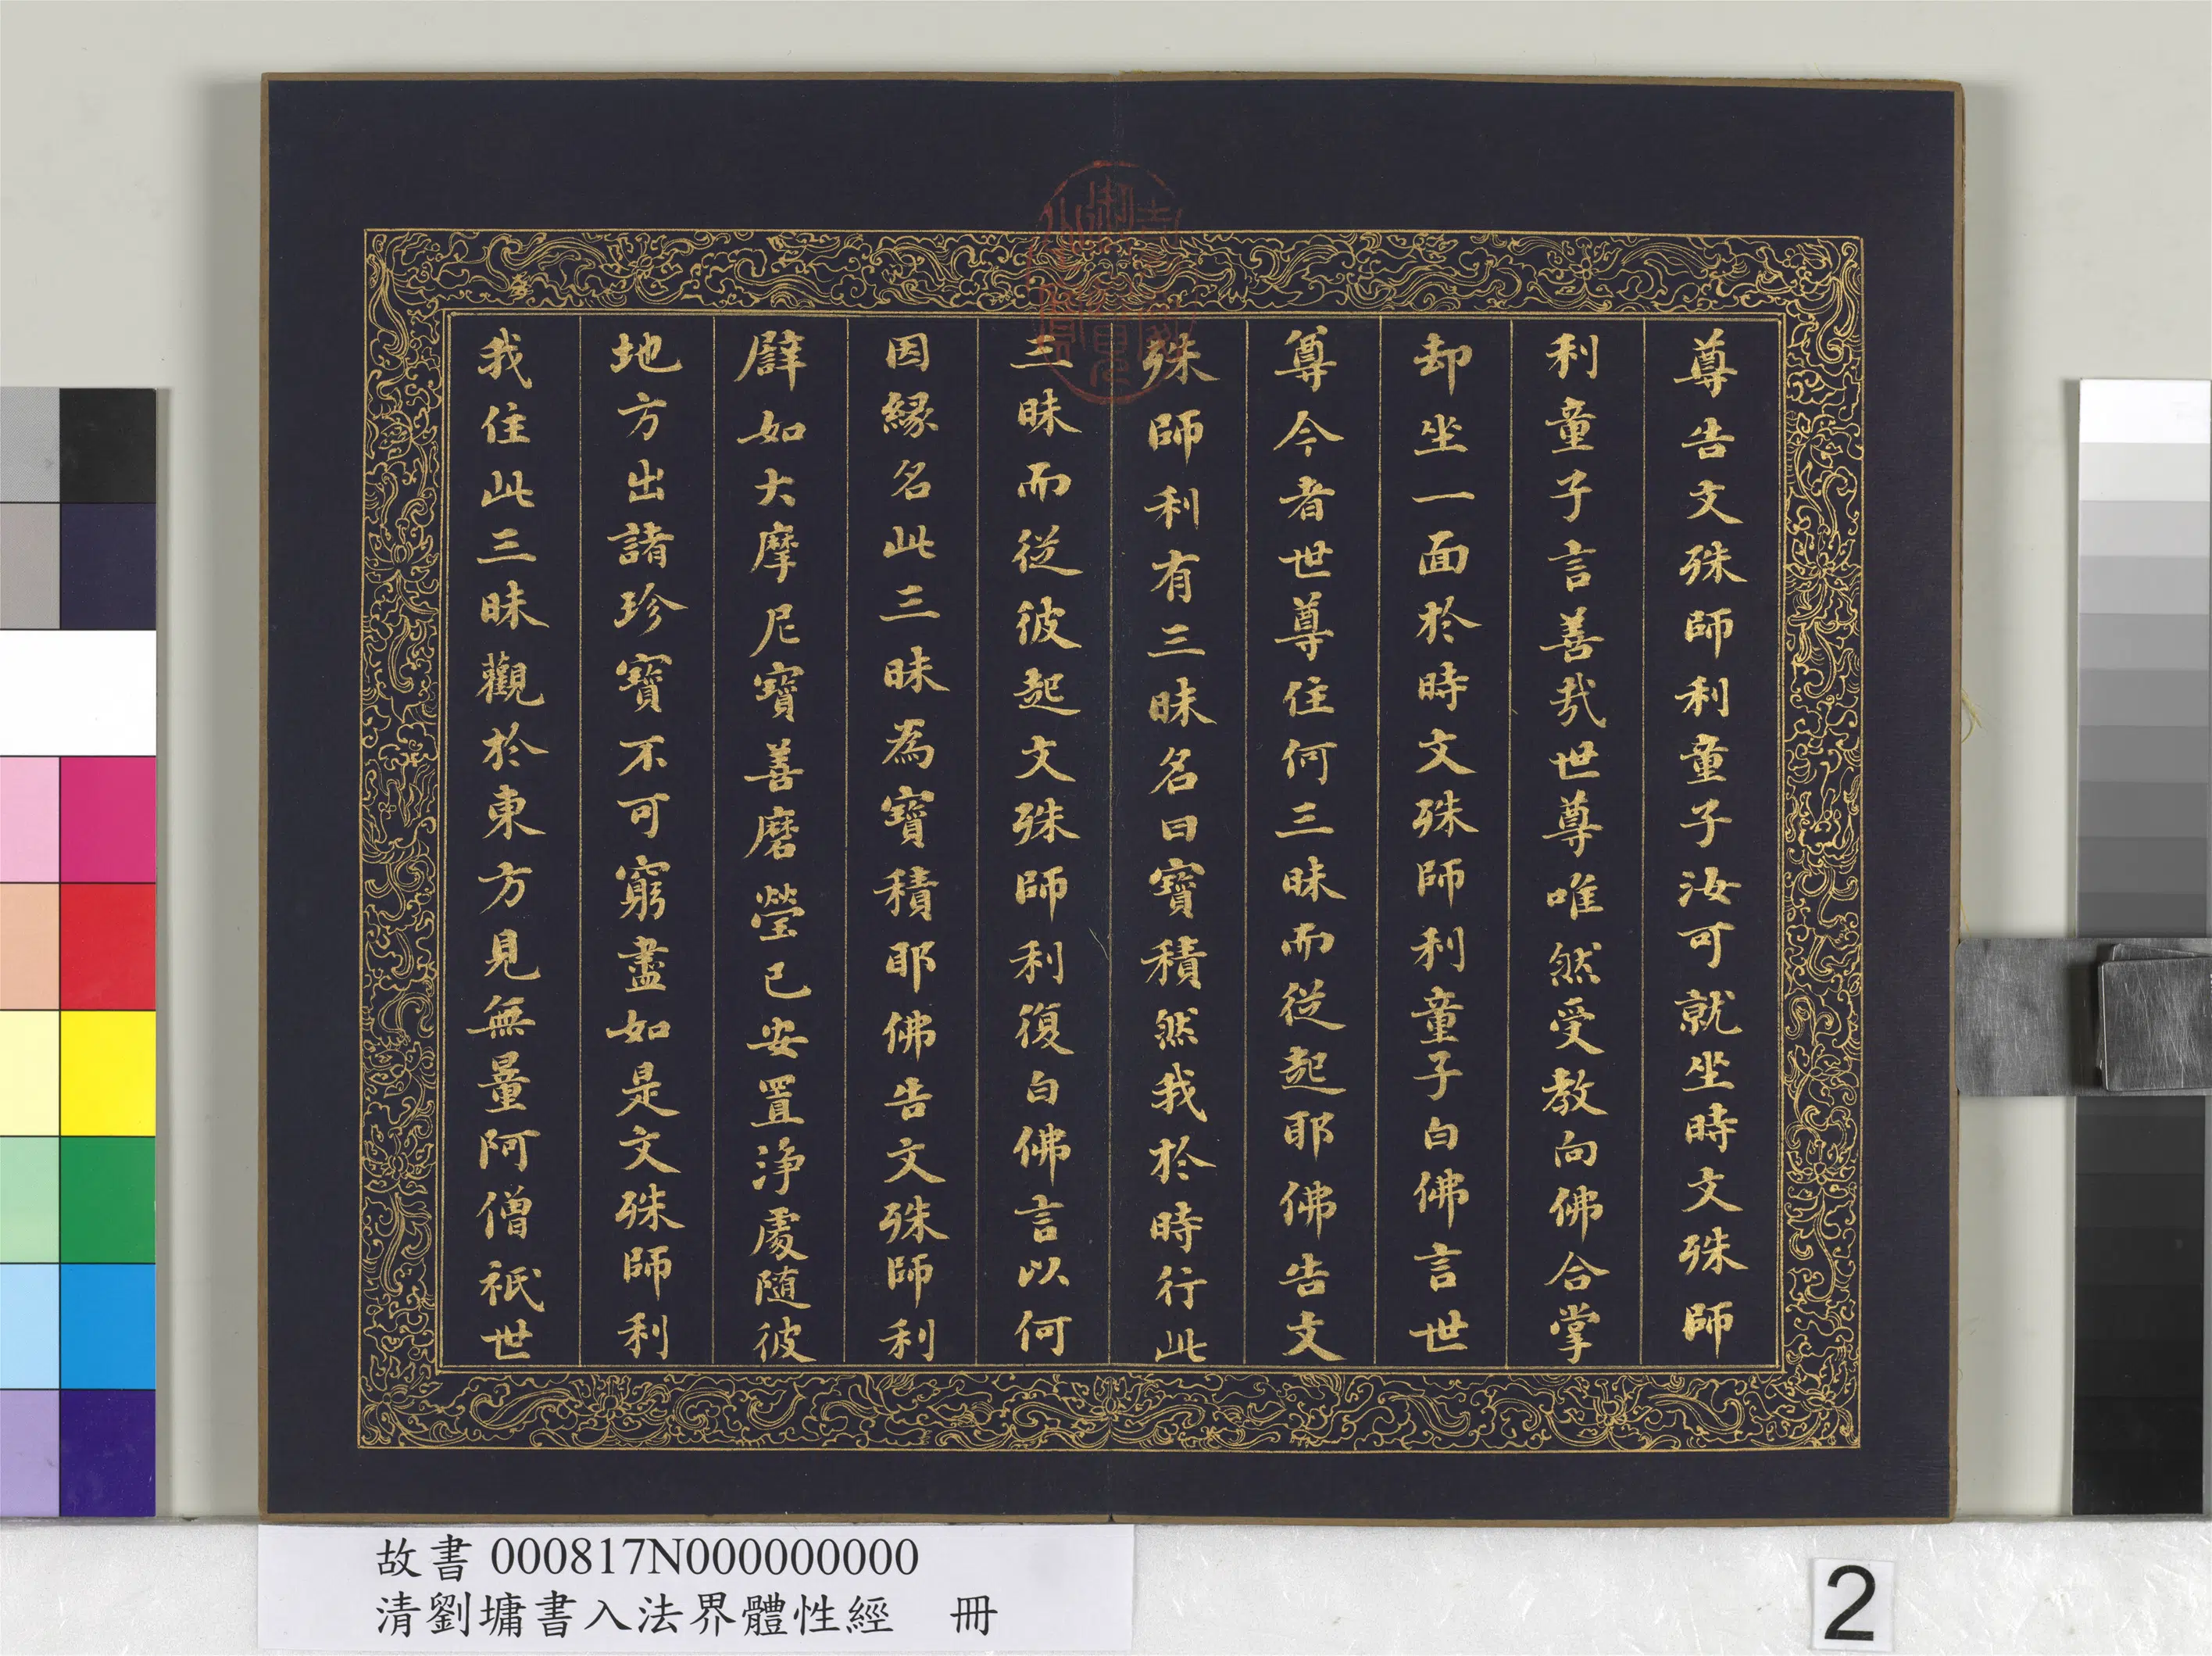 尊告文殊師利童子汝可就坐時文殊師
利童子言善哉世尊唯然受教向佛合掌
却坐一面於時文殊師利童子白佛言世
尊今者世尊住何三昧而從起耶佛告文
殊師利有三昧名曰寶積然我於時行此
三昧而從彼起文殊師利復白佛言以何
因緣名此三昧為寶積耶佛告文殊師利
譬如大摩尼寶善磨瑩已安置淨處隨彼
地方出諸珍寶不可窮盡如是文殊師利
我住此三昧觀於東方見無量阿僧祇世
故書 000817N000000000
清劉墉書入法界體性經 冊
2